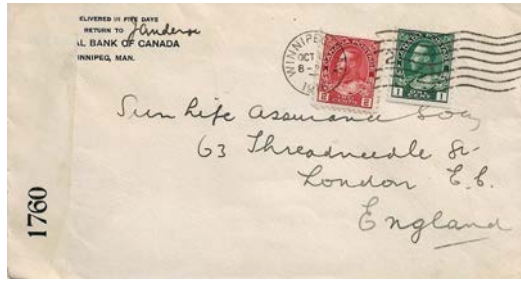 ELIVERED IN FIVE DAYS
RETURN TO J Anderson
AL BANK OF CANADA
INNIPEG, MAN.
WINNIPEG
OCT
8 -
19
2 2
1 1
Sun Life Assurance Socy
63 Threadneedle St
London E.C.
England
1760